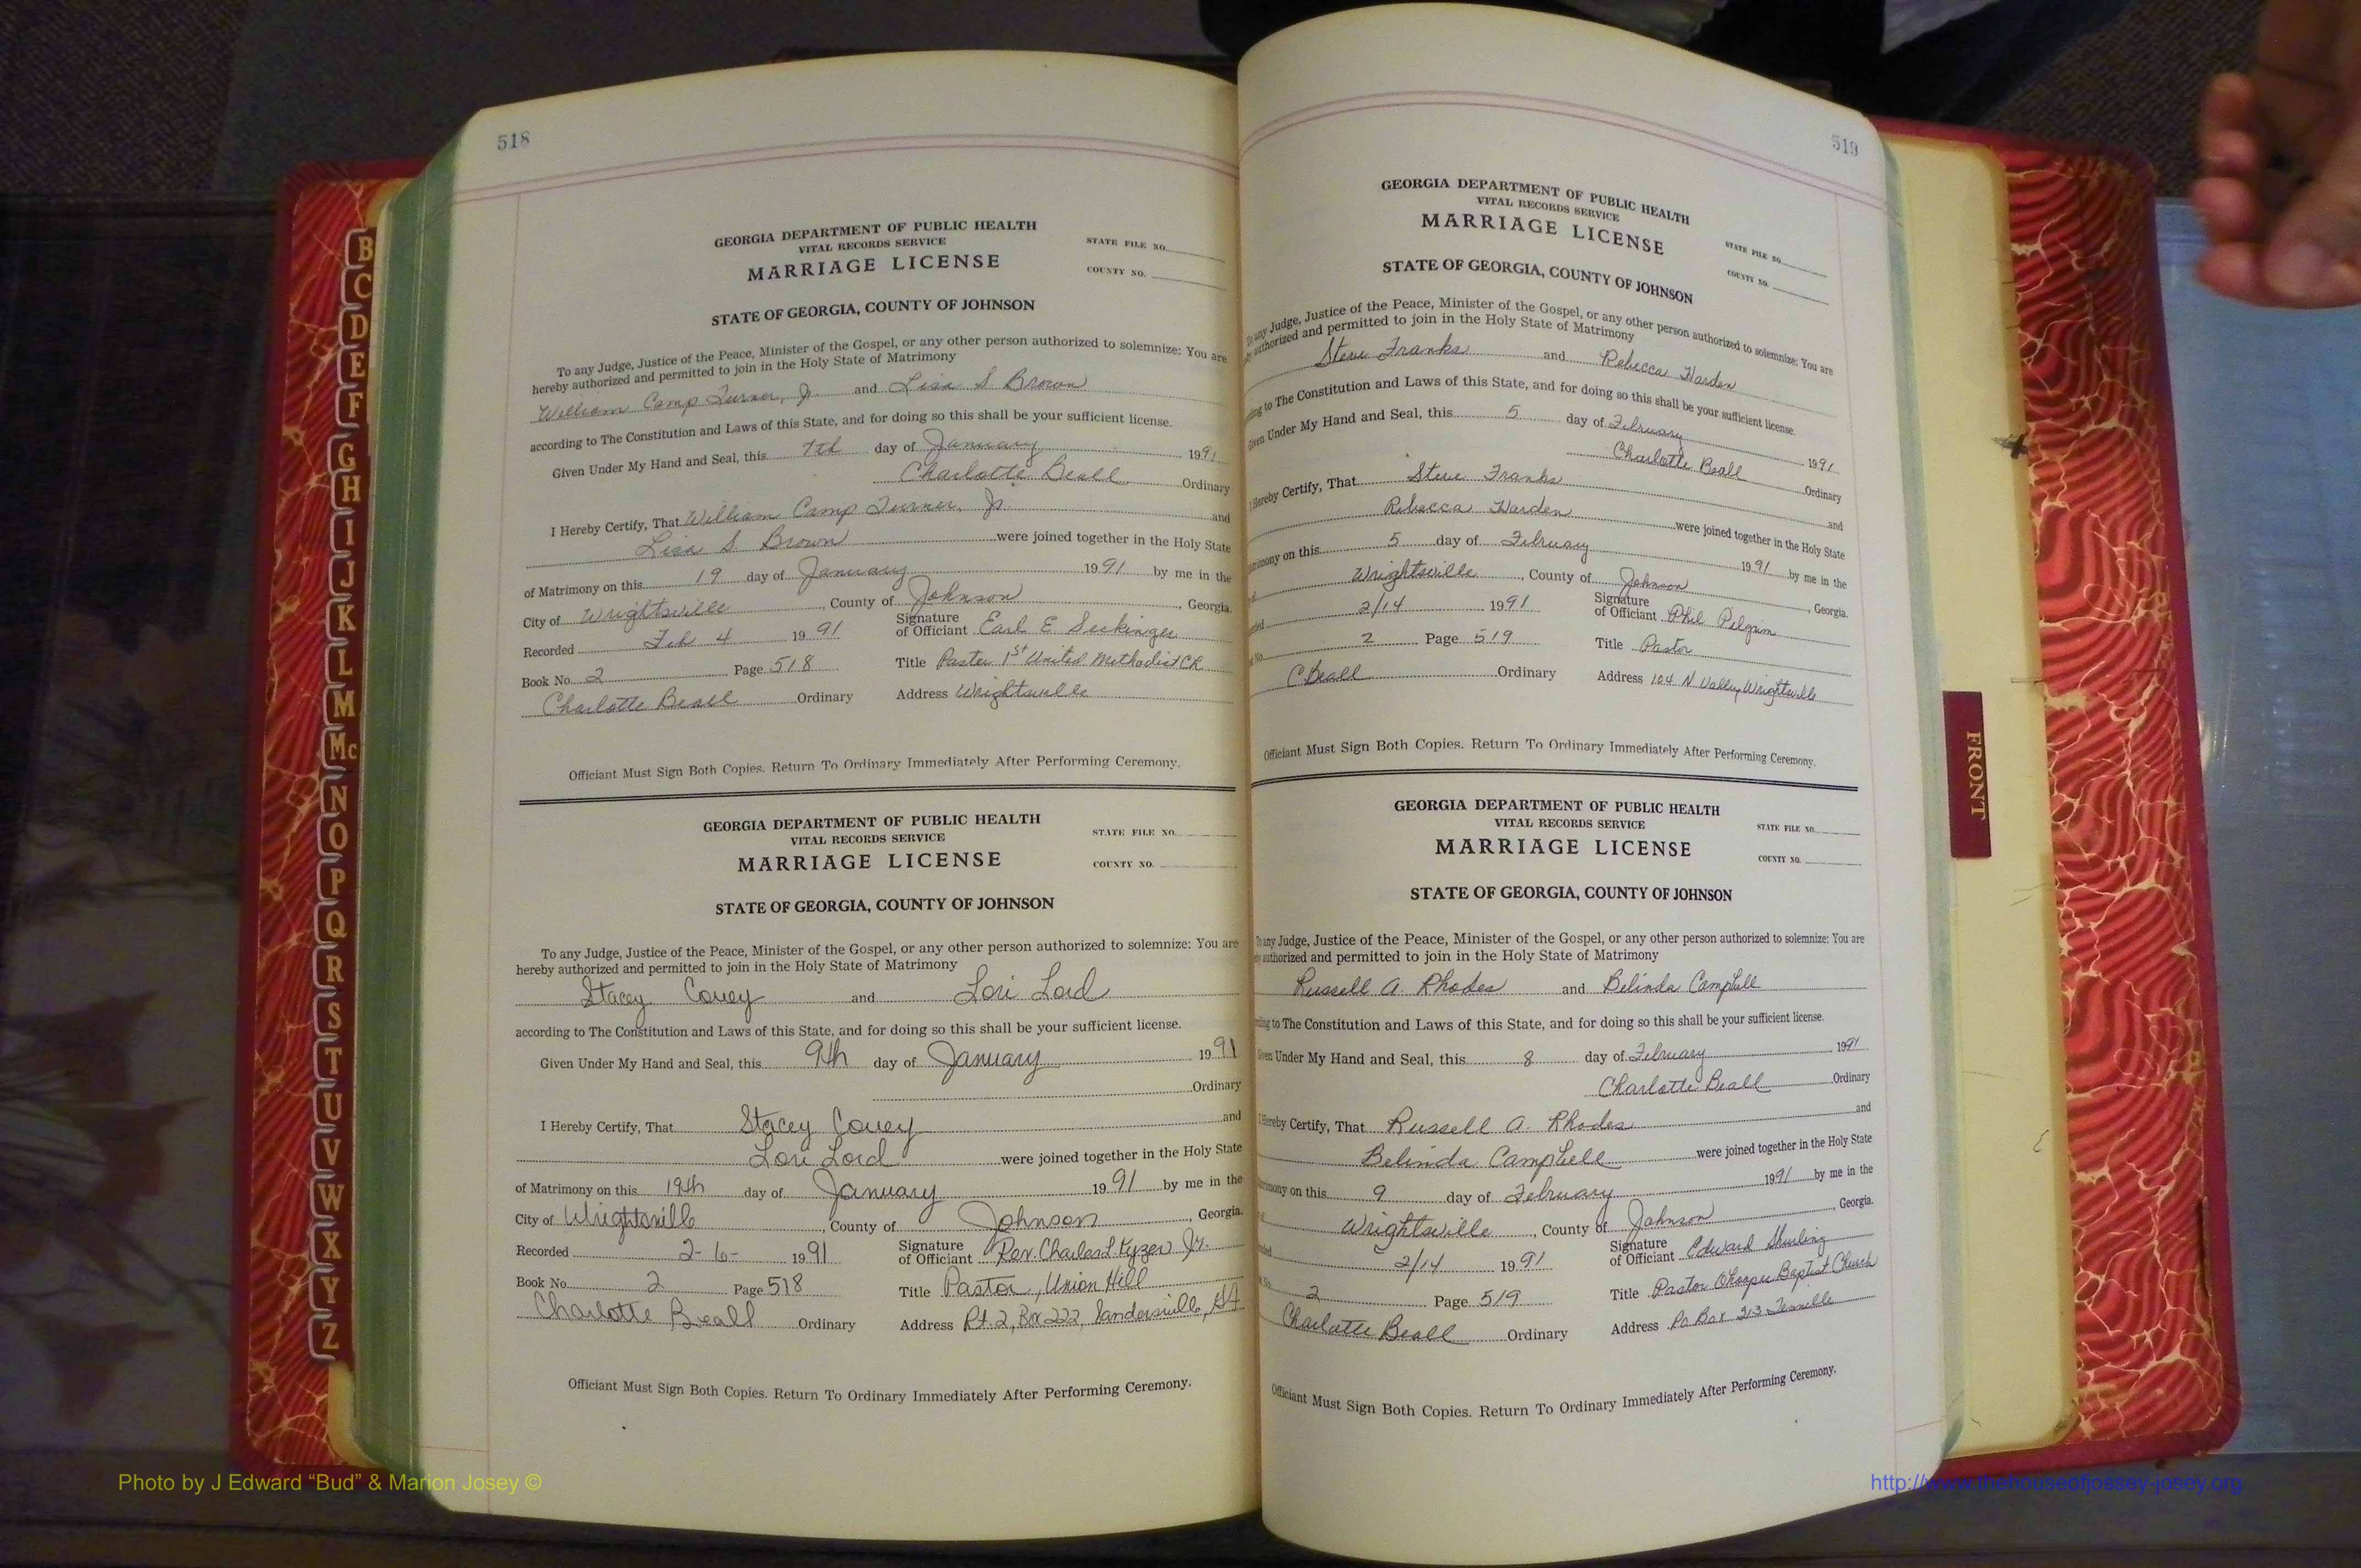 518
GEORGIA DEPARTMENT OF PUBLIC HEALTH
VITAL RECORDS SERVICE
MARRIAGE LICENSE
STATE FILE NO.
COUNTY NO.
STATE OF GEORGIA, COUNTY OF JOHNSON
To any Judge, Justice of the Peace, Minister of the Gospel, or any other person authorized to solemnize: You are
hereby authorized and permitted to join in the Holy State of Matrimony
William Camp Turner, Jr. and Lisa S Brown
according to The Constitution and Laws of this State, and for doing so this shall be your sufficient license.
Given Under My Hand and Seal, this 7th day of January 1991
Charlotte Beall Ordinary
I Hereby Certify, That William Camp Turner, Jr. and
Lisa S Brown were joined together in the Holy State
of Matrimony on this 19 day of January 1991 by me in the
City of Wrightsville, County of Johnson, Georgia.
Recorded Feb 4 1991 Signature of Officiant Earl E Seckinger
Book No. 2 Page 518 Title Pastor 1st United Methodist Ch
Charlotte Beall Ordinary Address Wrightsville
Officiant Must Sign Both Copies. Return To Ordinary Immediately After Performing Ceremony.
GEORGIA DEPARTMENT OF PUBLIC HEALTH
VITAL RECORDS SERVICE
MARRIAGE LICENSE
STATE FILE NO.
COUNTY NO.
STATE OF GEORGIA, COUNTY OF JOHNSON
To any Judge, Justice of the Peace, Minister of the Gospel, or any other person authorized to solemnize: You are
hereby authorized and permitted to join in the Holy State of Matrimony
Stacey Covey and Lori Lord
according to The Constitution and Laws of this State, and for doing so this shall be your sufficient license.
Given Under My Hand and Seal, this 9th day of January 1991
Ordinary
I Hereby Certify, That Stacey Covey and
Lori Lord were joined together in the Holy State
of Matrimony on this 19th day of January 1991 by me in the
City of Wrightsville, County of Johnson, Georgia.
Recorded 2-6- 1991 Signature of Officiant Rev. Charles L. Kyzer Jr.
Book No. 2 Page 518 Title Pastor, Union Hill
Charlotte Beall Ordinary Address Rt. 2, Box 222, Sandersville, GA
Officiant Must Sign Both Copies. Return To Ordinary Immediately After Performing Ceremony.
519
GEORGIA DEPARTMENT OF PUBLIC HEALTH
VITAL RECORDS SERVICE
MARRIAGE LICENSE
STATE FILE NO.
COUNTY NO.
STATE OF GEORGIA, COUNTY OF JOHNSON
To any Judge, Justice of the Peace, Minister of the Gospel, or any other person authorized to solemnize: You are
authorized and permitted to join in the Holy State of Matrimony
Steve Franks and Rebecca Harden
to The Constitution and Laws of this State, and for doing so this shall be your sufficient license.
Given Under My Hand and Seal, this 5 day of February 1991
Charlotte Beall Ordinary
I Hereby Certify, That Steve Franks and
Rebecca Harden were joined together in the Holy State
on this 5 day of February 1991 by me in the
Wrightsville, County of Johnson, Georgia.
2/14 1991 Signature of Officiant Phil Pilgrim
2 Page 519 Title Pastor
C Beall Ordinary Address 104 N Valley, Wrightsville
Officiant Must Sign Both Copies. Return To Ordinary Immediately After Performing Ceremony.
GEORGIA DEPARTMENT OF PUBLIC HEALTH
VITAL RECORDS SERVICE
MARRIAGE LICENSE
STATE FILE NO.
COUNTY NO.
STATE OF GEORGIA, COUNTY OF JOHNSON
any Judge, Justice of the Peace, Minister of the Gospel, or any other person authorized to solemnize: You are
authorized and permitted to join in the Holy State of Matrimony
Russell A. Rhodes and Belinda Campbell
to The Constitution and Laws of this State, and for doing so this shall be your sufficient license.
Given Under My Hand and Seal, this 8 day of February 1991
Charlotte Beall Ordinary
I Hereby Certify, That Russell A. Rhodes and
Belinda Campbell were joined together in the Holy State
on this 9 day of February 1991 by me in the
Wrightsville, County of Johnson, Georgia.
2/14 1991 Signature of Officiant Edward Shurling
2 Page 519 Title Pastor Ohoopee Baptist Church
Charlotte Beall Ordinary Address PO Box 213 Tennille
Officiant Must Sign Both Copies. Return To Ordinary Immediately After Performing Ceremony.
B
C
D
E
F
G
H
I
J
K
L
M
Mc
N
O
P
Q
R
S
T
U
V
W
X
Y
Z
FRONT
Photo by J Edward “Bud” & Marion Josey ©
http://www.thehouseofjossey-josey.org